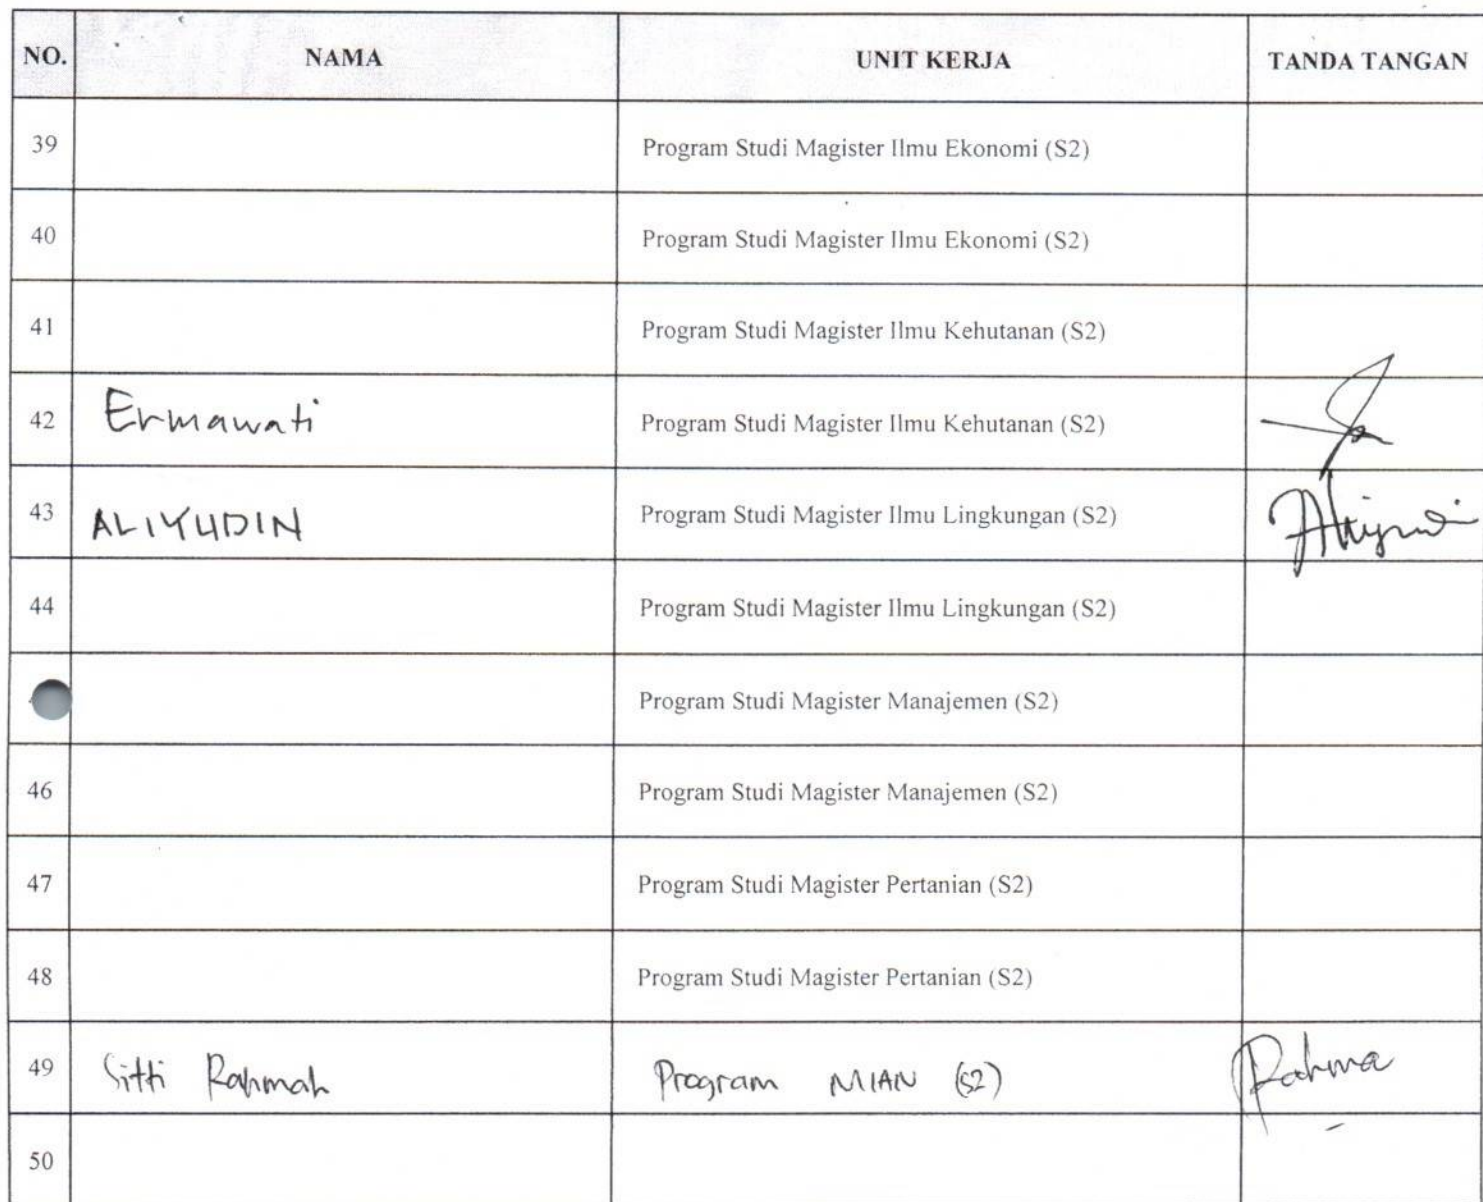 NO. NAMA UNIT KERJA TANDA TANGAN
39 Program Studi Magister Ilmu Ekonomi (S2)
40 Program Studi Magister Ilmu Ekonomi (S2)
41 Program Studi Magister Ilmu Kehutanan (S2)
42 Ermawati Program Studi Magister Ilmu Kehutanan (S2)
43 ALIYUDIN Program Studi Magister Ilmu Lingkungan (S2)
44 Program Studi Magister Ilmu Lingkungan (S2)
Program Studi Magister Manajemen (S2)
46 Program Studi Magister Manajemen (S2)
47 Program Studi Magister Pertanian (S2)
48 Program Studi Magister Pertanian (S2)
49 Sitti Rahmah Program MIAN (S2) Rahma
50